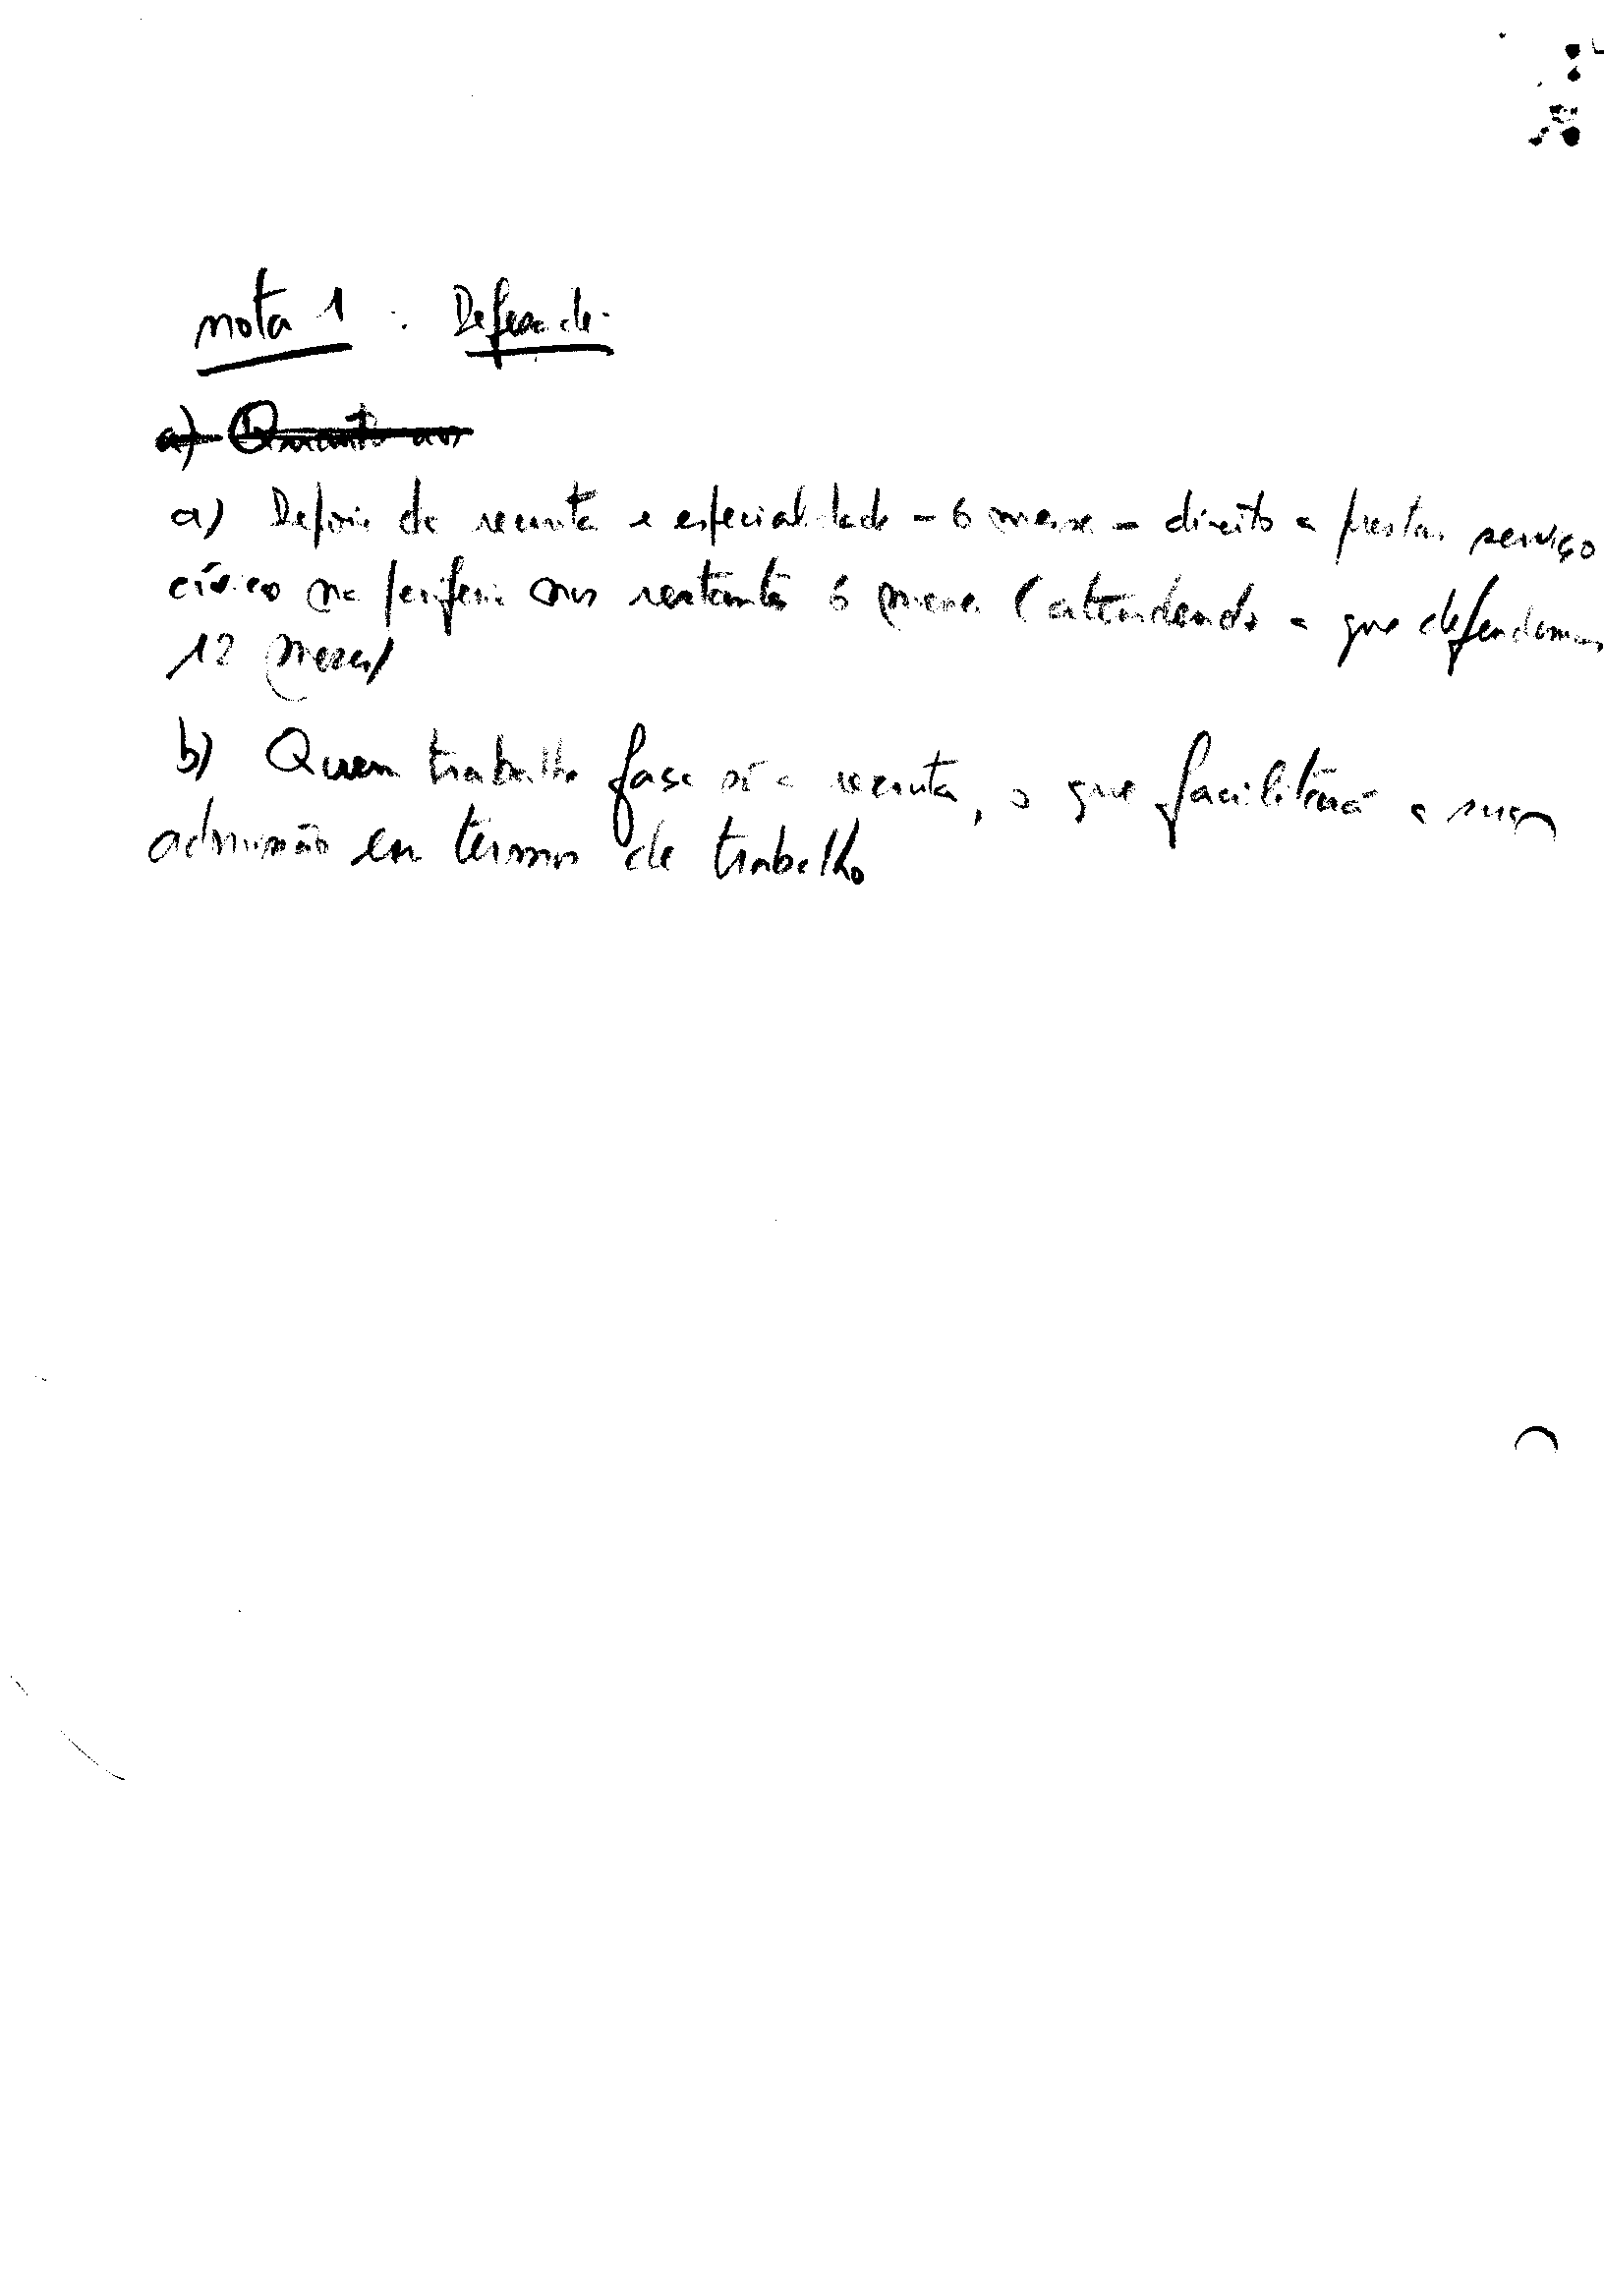 nota 1 : Defende:
a) Quanto aos
a) Depois da recruta e especialidade - 6 meses - direito a prestar serviço
cívico na periferia nos restantes 6 meses (atendendo a que defendemos
12 meses)
b) Quem trabalha faça só a recruta, o que facilitará a sua
admissão em termos de trabalho